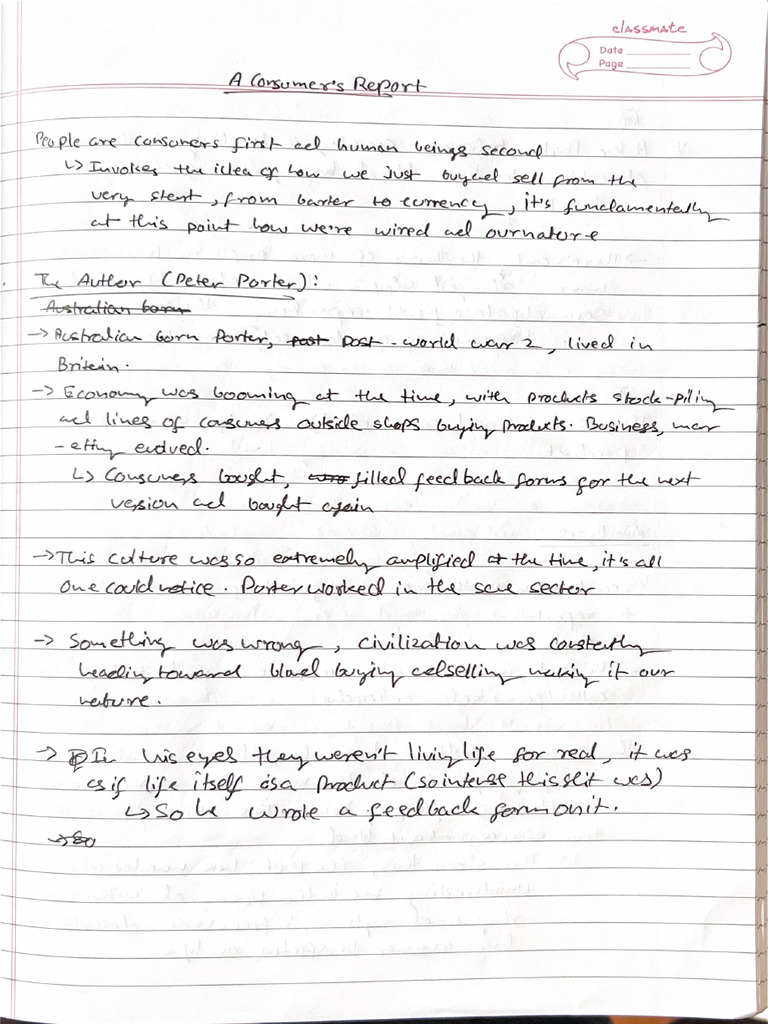 classmate
Date
Page
A Consumer's Report
People are consumers first and human beings second
↳ Invokes the idea of how we just buy and sell from the
very start, from barter to currency, it's fundamentally
at this point how we're wired and our nature
The Author (Peter Porter):
Australian born
→ Australian born Porter, past post - world war 2, lived in
Britain.
→ Economy was booming at the time, with products stock-piling
and lines of consumers outside shops buying products. Business, mar
-eting evolved.
↳ Consumers bought, filled feedback forms for the next
version and bought again
→ This culture was so extremely amplified at the time, it's all
one could notice. Porter worked in the same sector
→ Something was wrong, civilization was constantly
heading toward bland buying and selling making it our
nature.
→ In his eyes they weren't living life for real, it was
as if life itself is a product (so intense this shit was)
↳ So he wrote a feedback form on it.
→ So